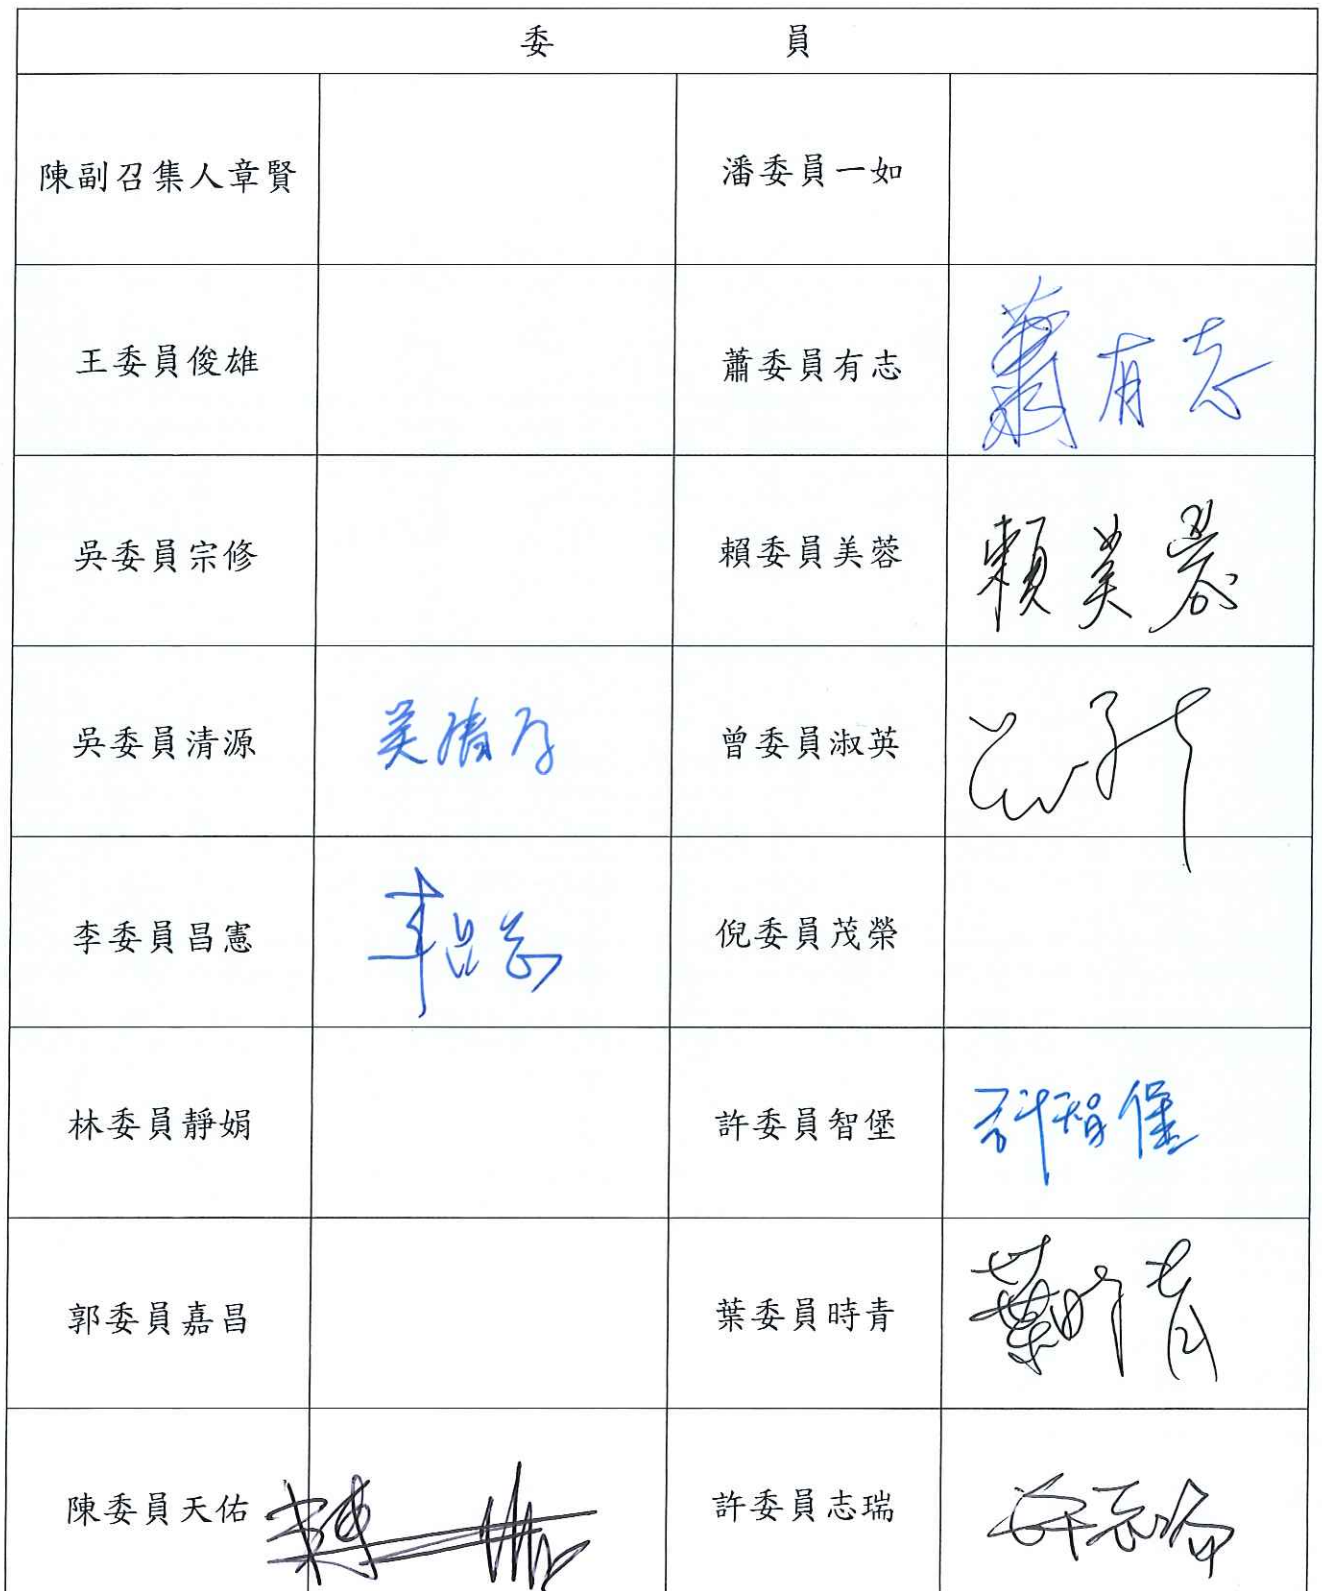 委員
陳副召集人章賢 潘委員一如
王委員俊雄 蕭委員有志 蕭有志
吳委員宗修 賴委員美蓉 賴美蓉
吳委員清源 吳清源 曾委員淑英
李委員昌憲 李昌憲 倪委員茂榮
林委員靜娟 許委員智堡 許智堡
郭委員嘉昌 葉委員時青 葉時青
陳委員天佑 許委員志瑞 許志瑞